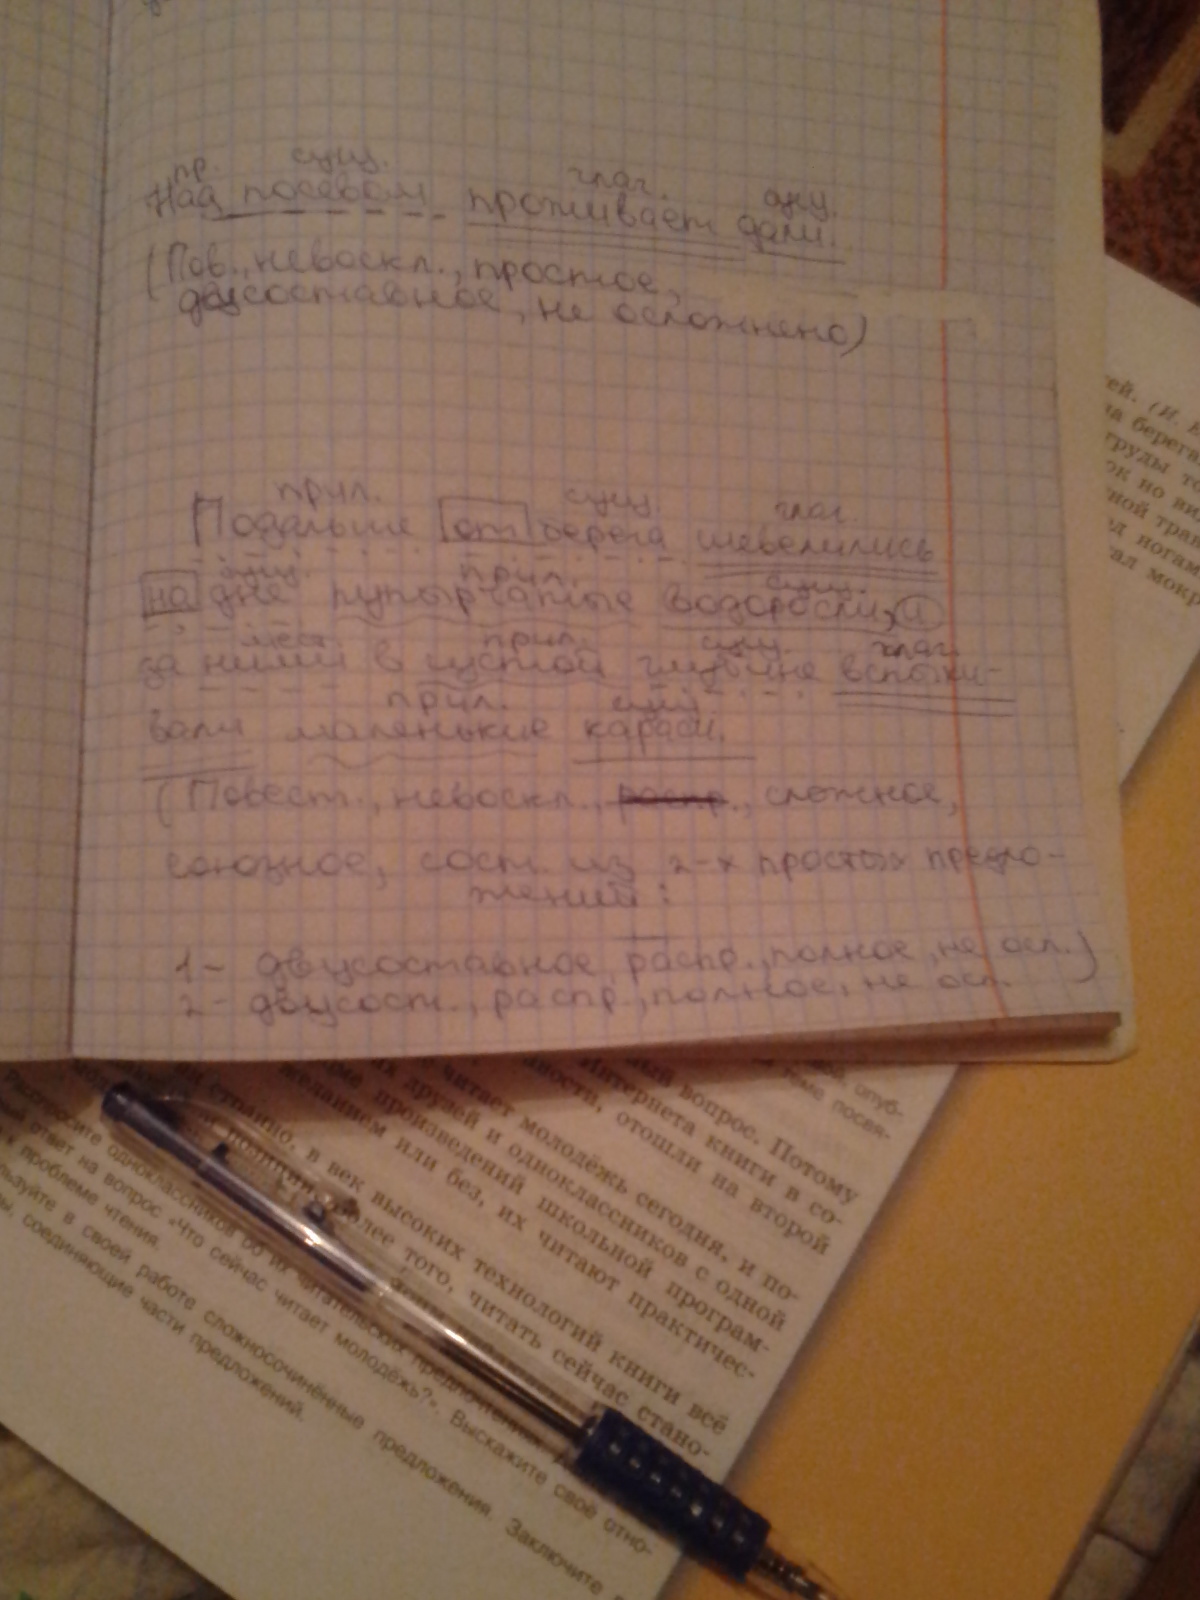 пр. сущ. глаг. сущ.
Над посевом проживает дали.
(Пов., невоскл., простое,
двусоставное, не осложнено)
прил. сущ. глаг.
Подальше от берега шевелились
сущ. прил. сущ.
на дне пупырчатые водоросли, и
мест. прил. сущ. глаг.
за ними в густой глубине вспыхи-
прил. сущ.
вали маленькие караси.
(Повест., невоскл., распр., сложное,
союзное, сост. из 2-х простых предло-
жений:
1- двусоставное, распр., полное, не осл.)
2- двусост., распр., полное, не осл.
ей. (И.
на берега
груды то
ок но ви
ной трав
д ногам
ал мокр
опуб-
теме посвя-
ный вопрос. Потому
Интернета книги в со-
ности, отошли на второй
читает молодёжь сегодня, и по-
друзей и одноклассников с одной
произведений школьной програм-
желанием или без, их читают практичес-
странно, в век высоких технологий книги всё
более того, читать сейчас стано-
одноклассников об их читательских предпочтениях
ответ на вопрос «Что сейчас читает молодёжь?». Выскажите своё отно-
проблеме чтения.
льзуйте в своей работе сложносочинённые предложения. Заключите в
соединяющие части предложений.